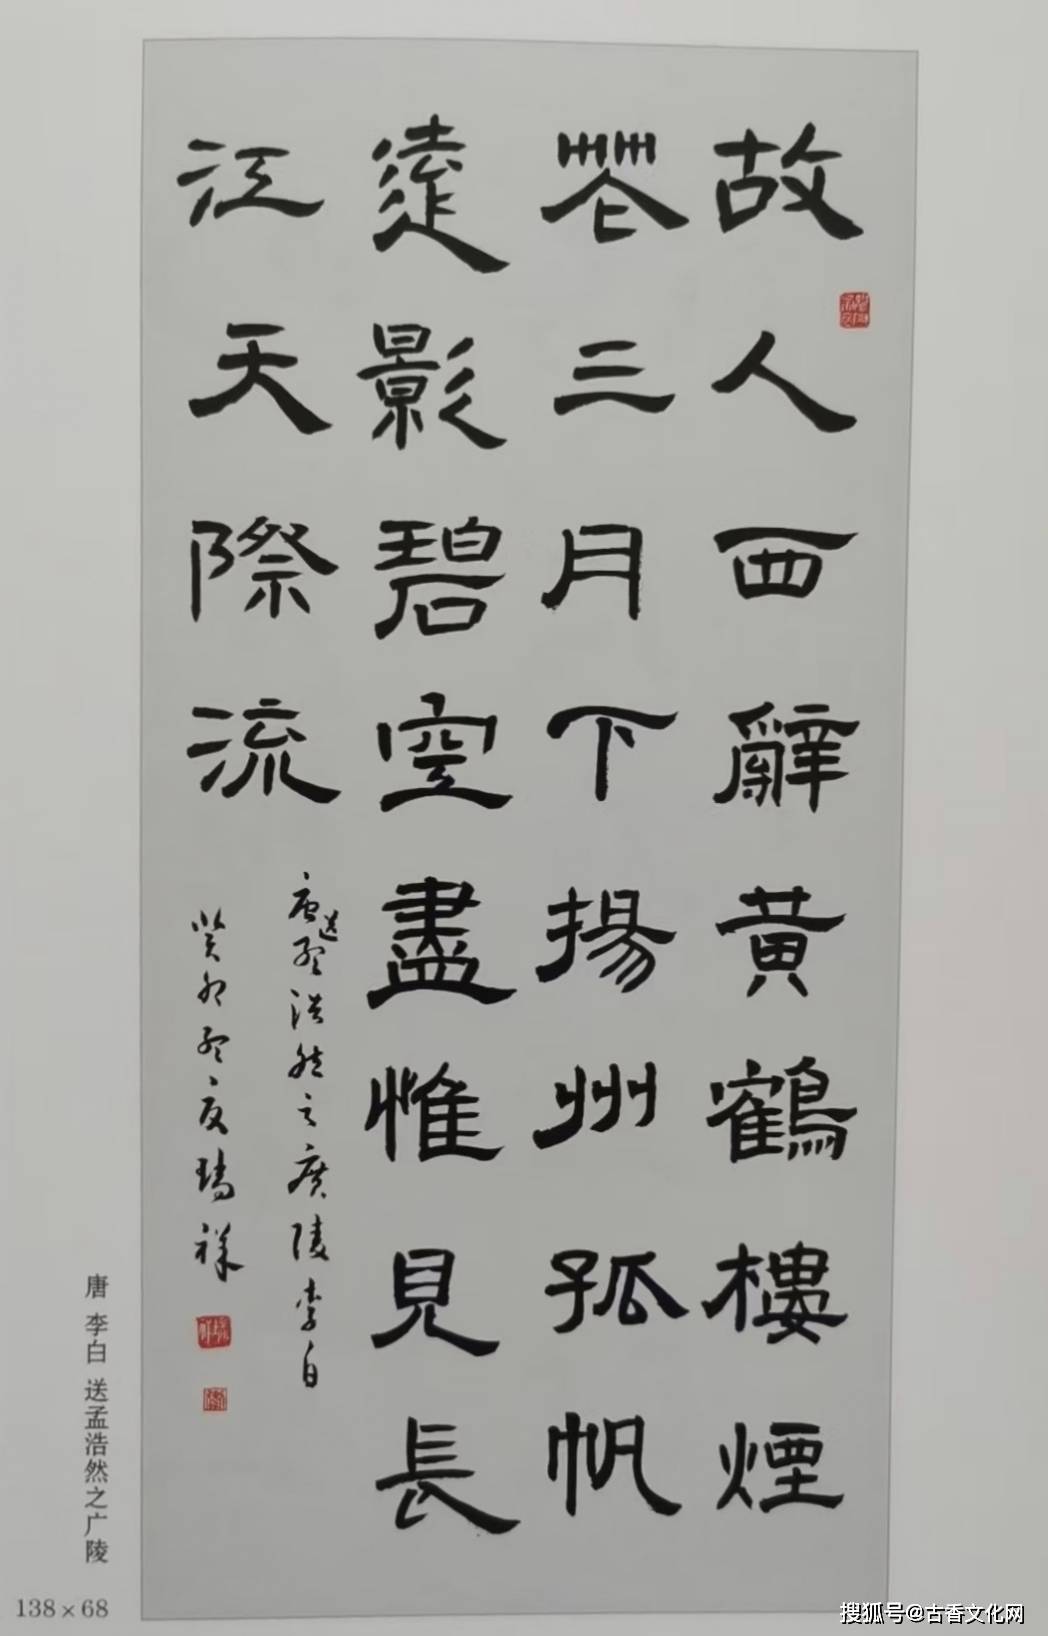 故人西辭黄鶴樓煙
花三月下揚州孤帆
遠影碧空盡惟見長
江天際流
唐送孟浩然之廣陵李白
癸卯孟夏瑞祥
唐 李白 送孟浩然之广陵
138×68
搜狐号@古香文化网